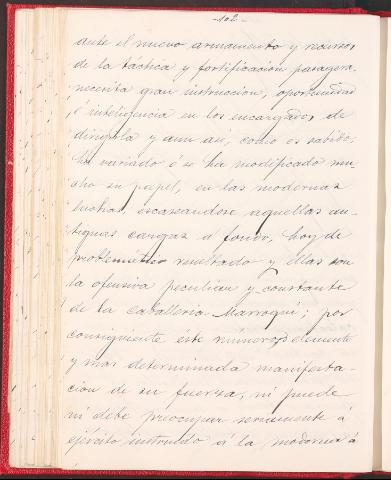 -102-
ante el nuevo armamento y recursos
de la táctica y fortificacion pasagera
necesita gran instruccion, oportunidad
é inteligencia en los encargados de
dirigirla y aun asi, como es sabido,
ha variado ó se ha modificado mu-
cho su papel, en las modernas
luchas, escaseandose aquellas an-
tiguas cargas á fondo, hoy de
problematico resultado y ellas son
la ofensiva peculiar y constante
de la caballeria Marroquí; por
consiguiente éste numeroso elemento
y mas determinada manifesta-
cion de su fuerza, ni puede
ni debe preocupar seriamente á
ejército instruido á la moderna á